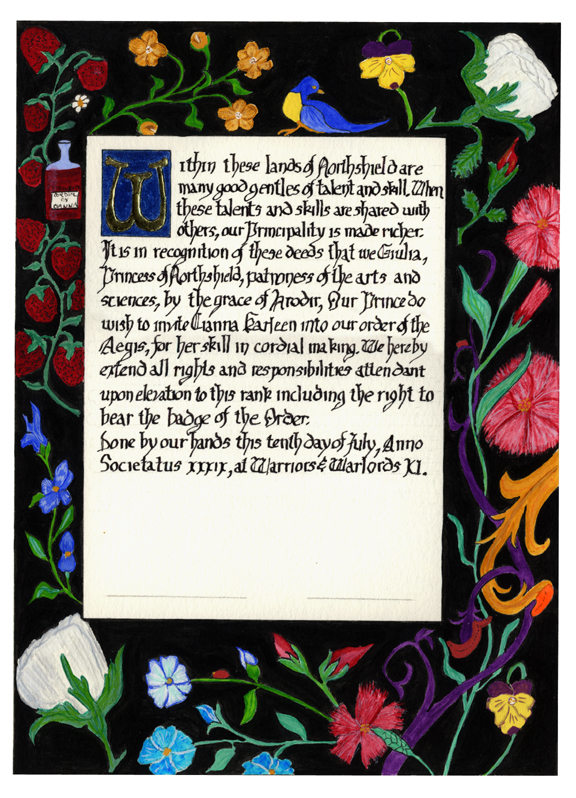 Within these lands of Northshield are
many good gentles of talent and skill. When
these talents and skills are shared with
others, our Principality is made richer.
It is in recognition of these deeds that we Giulia,
Princess of Northshield, patroness of the arts and
sciences, by the grace of Arodir, Our Prince do
wish to invite Cianna into our order of the
Aegis, for her skill in cordial making. We hereby
extend all rights and responsibilities attendant
upon elevation to this rank including the right to
bear the badge of the Order.
Done by our hands this tenth day of July, Anno
Societatus xxxix, at Warriors & Warlords XI.
CORDIAL
BY
CIANNA